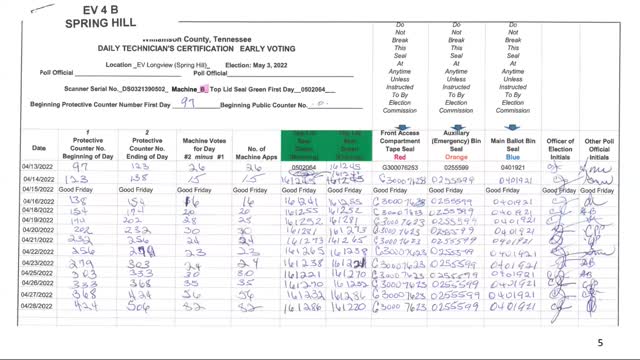 EV 4 B
SPRING HILL
Williamson County, Tennessee
DAILY TECHNICIAN'S CERTIFICATION EARLY VOTING
Location _EV Longview (Spring Hill)_ Election: May 3, 2022
Poll Official Poll Official
Scanner Serial No._DS0321390502_ Machine_B_ Top Lid Seal Green First Day _0502064_
Beginning Protective Counter Number First Day 97 Beginning Public Counter No. 0
Do Not Break This Seal at Anytime Unless Instructed To By Election Commission
Do Not Break This Seal at Anytime Unless Instructed To By Election Commission
Do Not Break This Seal at Anytime Unless Instructed To By Election Commission
1 Protective Counter No. Beginning of Day
2 Protective Counter No. Ending of Day
Machine Votes for Day #2 minus #1
No. of Machine Apps
Top Lid Seal Green
Top Lid Seal Green
Front Access Compartment Tape Seal Red
Auxiliary (Emergency) Bin Seal Orange
Main Ballot Bin Seal Blue
Officer of Election Initials
Other Poll Official Initials
04/13/2022 97 123 26 26 0502064 161245 G300076263 0255599 0401921
04/14/2022 123 138 15 15 161245 0255599 0401921
04/15/2022 Good Friday Good Friday Good Friday Good Friday Good Friday Good Friday Good Friday Good Friday Good Friday Good Friday Good Friday
04/16/2022 138 154 16 16 161241 161255 G30007623 0255599 0401921
04/18/2022 154 174 20 20 161255 161252 G30007623 0255599 0401921
04/19/2022 174 202 28 28 161252 161281 0255599 0401921
04/20/2022 202 232 30 30 161281 161273 G30007623 0255599 0401921
04/21/2022 232 256 24 24 161273 161265 G30007623 0255599 0401921
04/22/2022 256 279 23 23 161265 0255599 0401921
04/23/2022 279 303 24 24 161238 G30007623 0255599 0401921
04/25/2022 303 333 30 30 161221 161270 G30007623 0255599 0401921
04/26/2022 333 368 35 35 161270 161232 G30007623 0255599 0401921
04/27/2022 368 424 56 56 161232 161286 G30007623 0255599 0401921
04/28/2022 424 506 82 82 161286 161220 G30007623 0255599 0401921
5